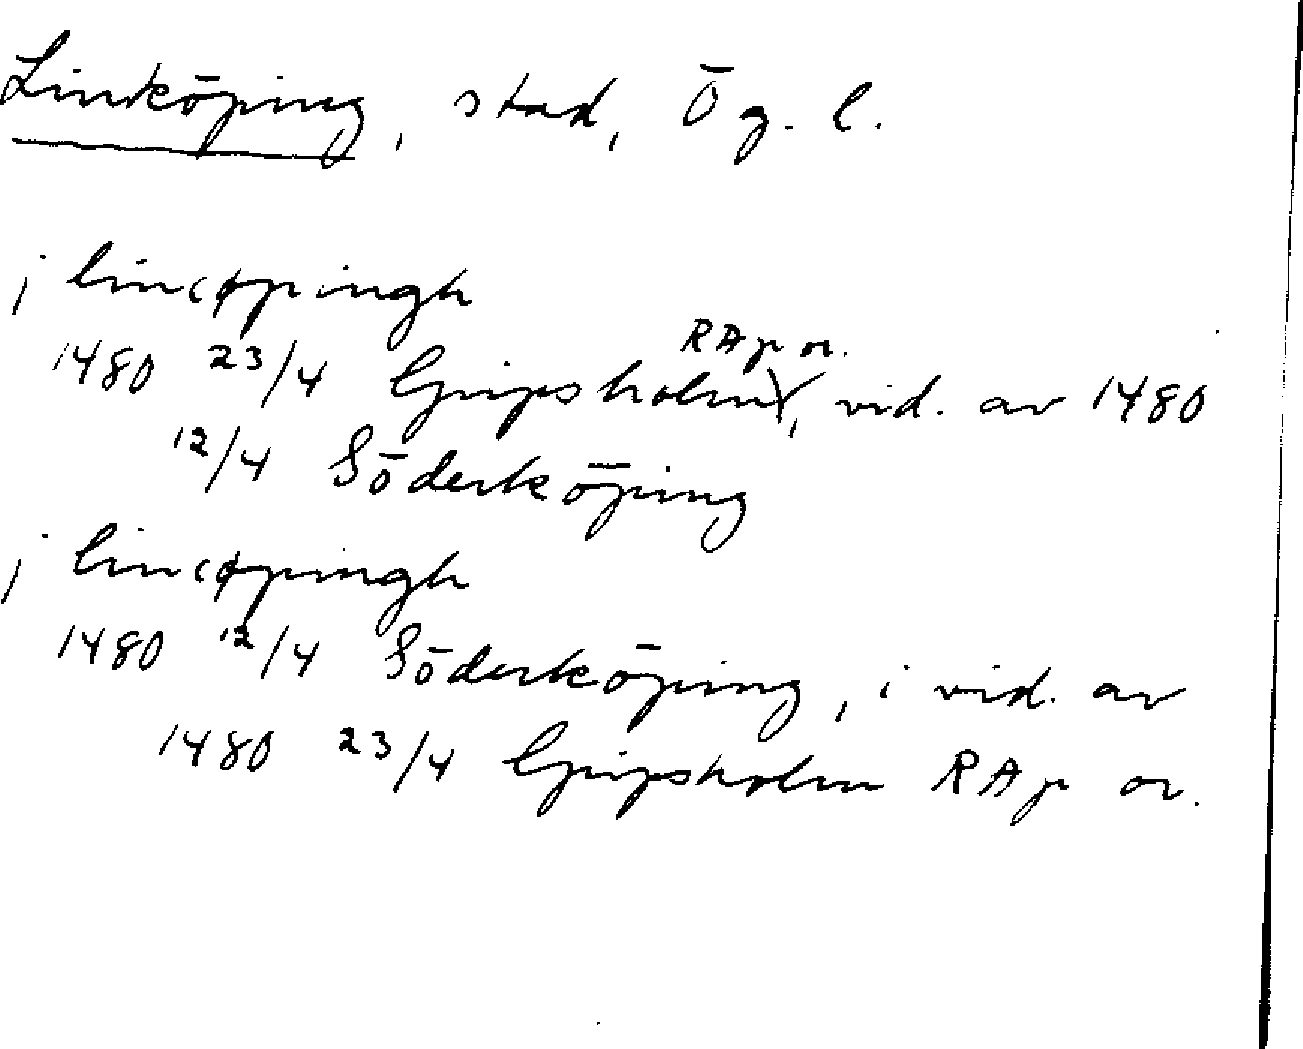 Linköping, stad, Ög. l.
j lincøpingh
RAp or.
1480 23/4 Gripsholm, vid. av 1480
12/4 Söderköping
j lincøpingh
1480 12/4 Söderköping, i vid. av
1480 23/4 Gripsholm RAp or.